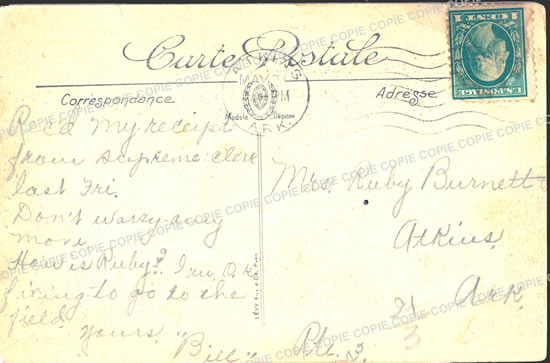 Carte Postale
Correspondance
Adresse
Modèle Déposé
MAY
M
ARK.
1 CENT 1
U.S. POSTAGE
Rec'd my receipt
from Supreme Clerk
last Fri.
Don't worry any
more
How is Ruby? I'm O.K.
firing to go to the
field
yours
"Bill"
Mrs. Ruby Burnett
Atkins
Ark
Rte. 3
COPIE COPIE COPIE COPIE